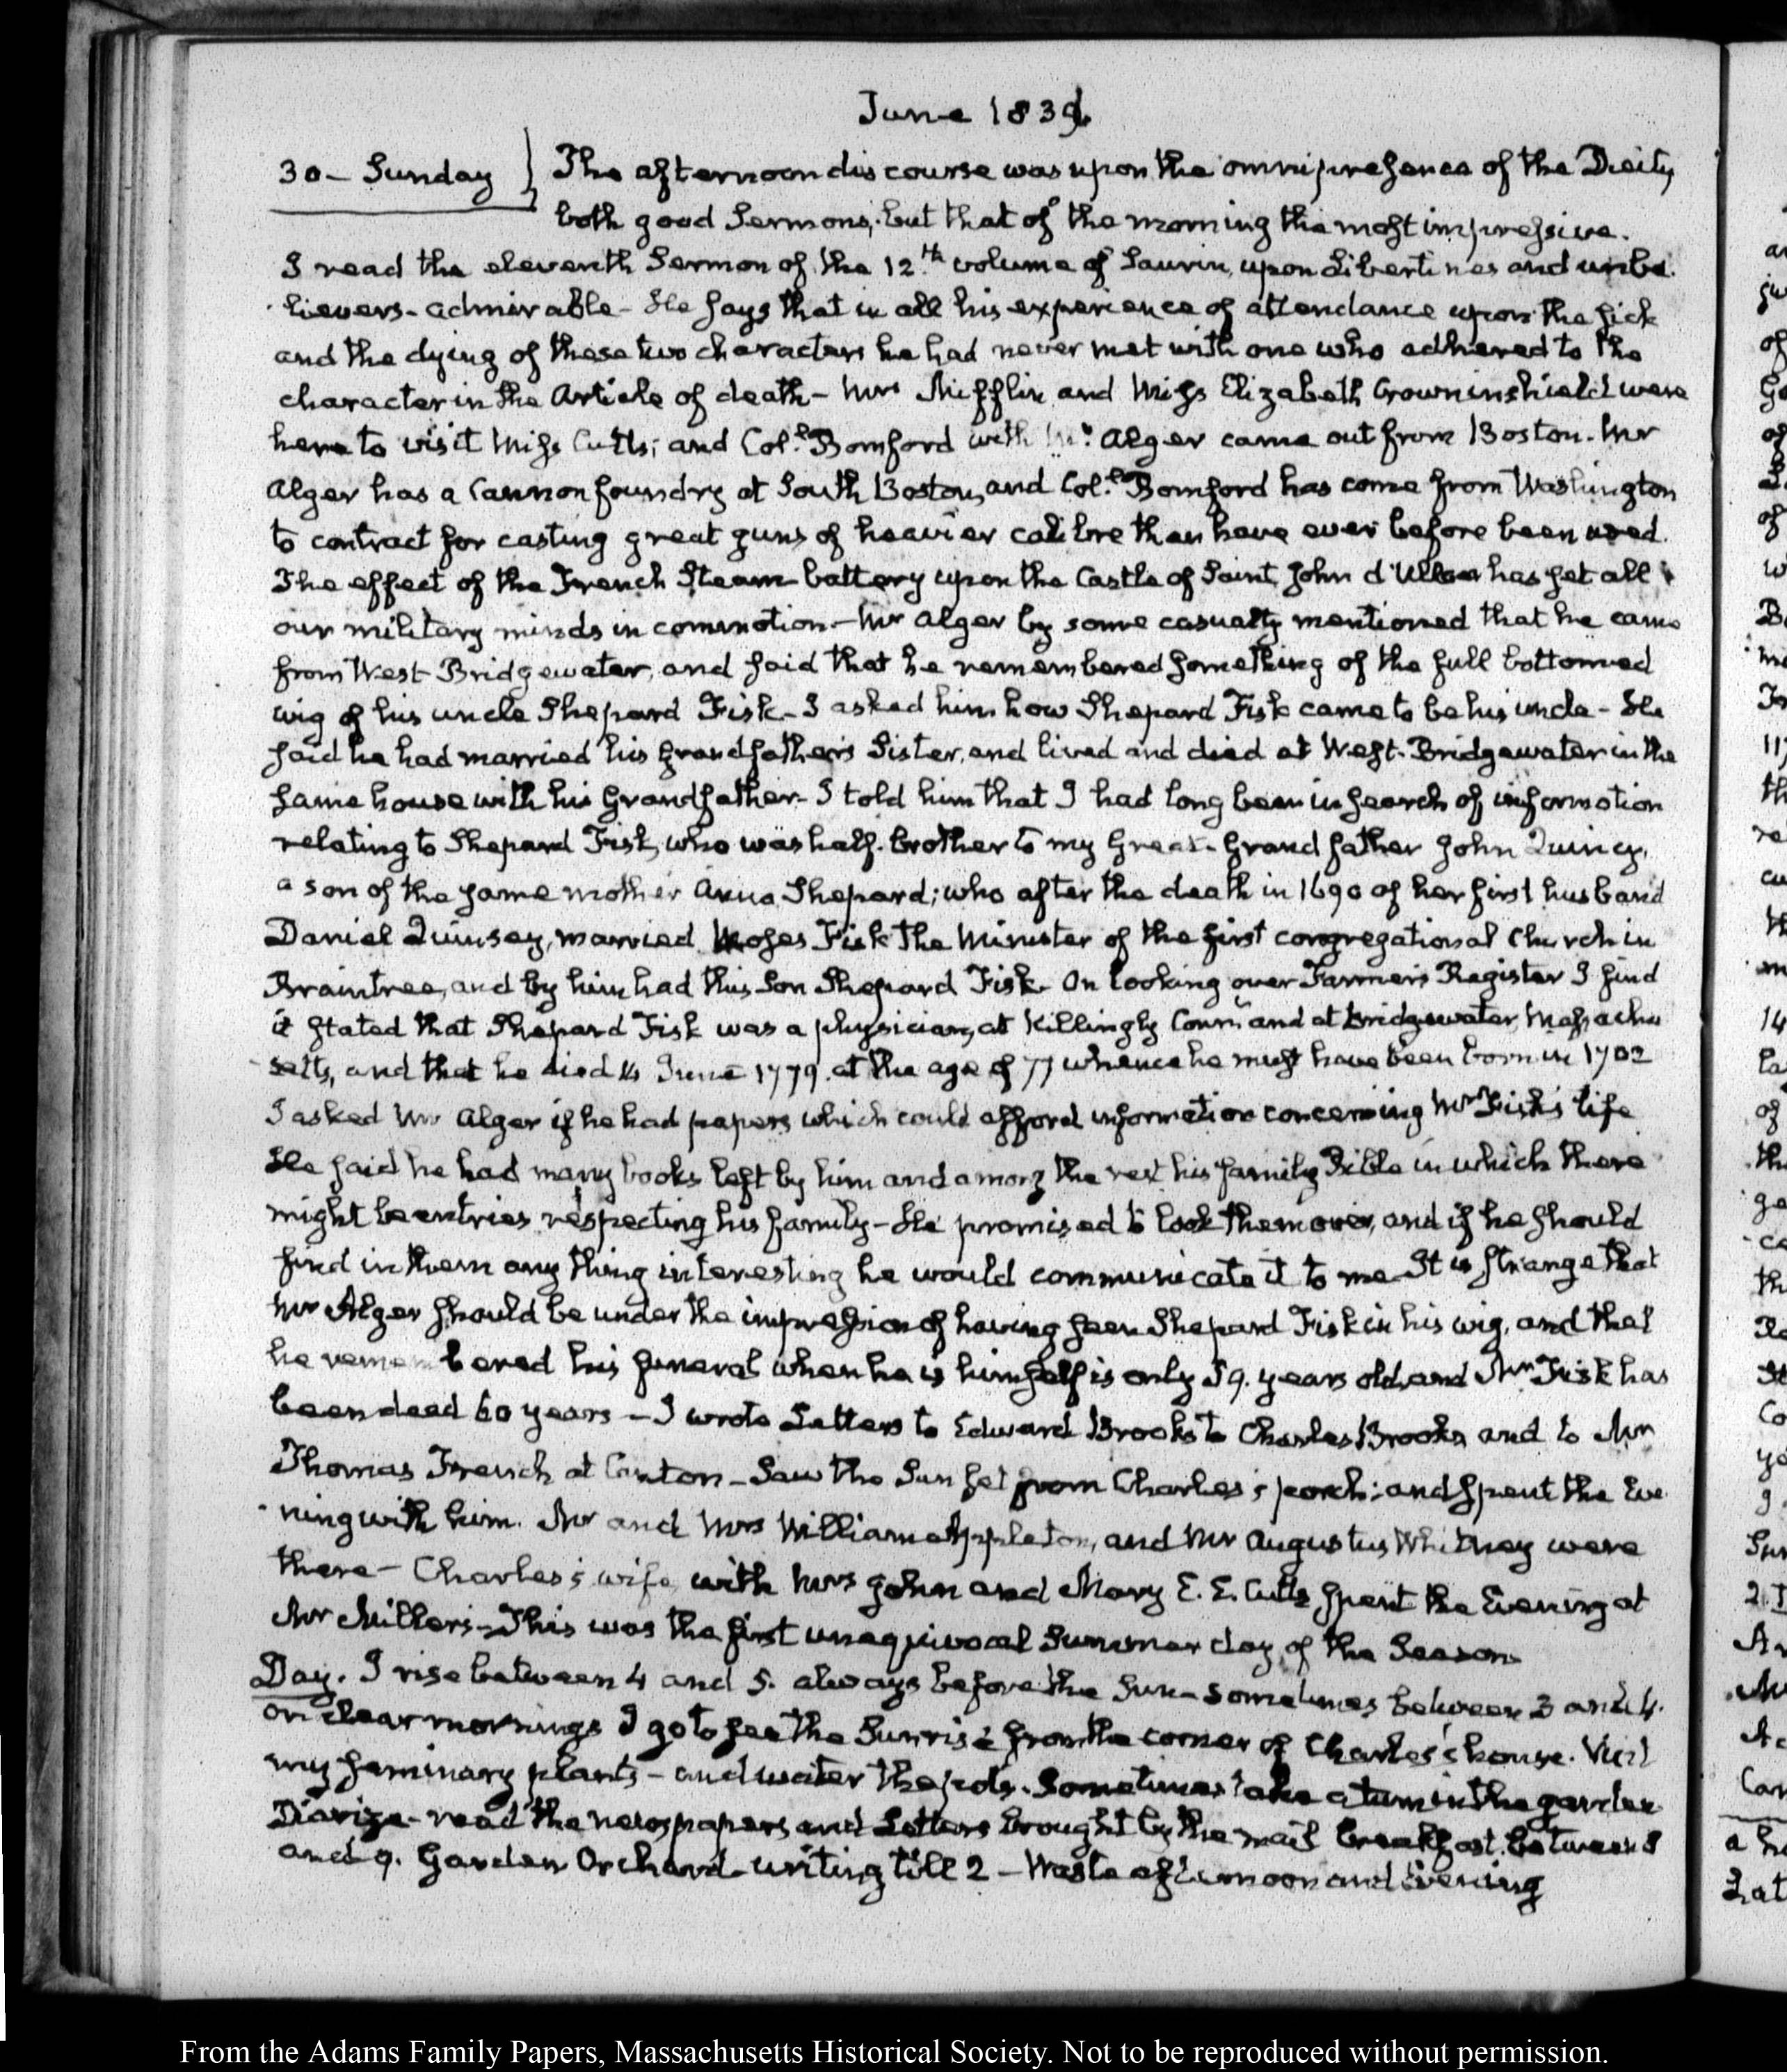 June 1839.
30 – Sunday } The afternoon discourse was upon the omnipresence of the Deity,
both good Sermons, but that of the morning the most impressive.
I read the eleventh Sermon of the 12.th volume of Saurin, upon Libertines and unbe-
lievers – admirable – He says that in all his experience of attendance upon the sick
and the dying of these two characters he had never met with one who adhered to the
character in the Article of death – Mrs Mifflin and Miss Elizabeth Crowninshield were
here to visit Miss Cutts; and Col.l Bomford with Mr. Alger came out from Boston. Mr
Alger has a Cannon foundry at South Boston, and Col.l Bomford has come from Washington
to contract for casting great guns of heavier calibre than have ever before been used.
The effect of the French Steam battery upon the Castle of Saint John d'Ulloa has set all
our military minds in commotion – Mr Alger by some casualty mentioned that he came
from West-Bridgewater, and said that he remembered something of the full bottomed
wig of his uncle Shepard Fisk – I asked him how Shepard Fisk came to be his uncle – He
said he had married his Grandfather's Sister, and lived and died at West-Bridgewater in the
same house with his Grandfather – I told him that I had long been in search of information
relating to Shepard Fisk, who was half-brother to my Great-Grandfather John Quincy,
a son of the same mother Anna Shepard; who after the death in 1690 of her first husband
Daniel Quinsey, married Moses Fisk the Minister of the first congregational Church in
Braintree, and by him had this Son Shepard Fisk. On looking over Farmer's Register I find
it stated that Shepard Fisk was a physician, at Killingly Conn. and at Bridgewater, Massachu-
setts, and that he died 14 June 1779. at the age of 77 whence he must have been born in 1702
I asked Mr Alger if he had papers which could afford information concerning Mr Fisk's life
He said he had many books left by him and among the rest his family Bible in which there
might be entries respecting his family – He promised to look them over, and if he should
find in them any thing interesting he would communicate it to me – It is strange that
Mr Alger should be under the impression of having seen Shepard Fisk in his wig, and that
he remembered his funeral when he is himself is only 59. years old, and Mr Fisk has
been dead 60 years – I wrote Letters to Edward Brooks to Charles Brooks and to Mr
Thomas French at Canton – Saw the Sun set from Charles's porch; and spent the Eve-
ning with him. Mr and Mrs William Appleton, and Mr Augustus Whitney were
there – Charles's wife, with Mrs John and Mary E. E. Cutts spent the Evening at
Mr Miller's – This was the first unequivocal Summer day, of the Season
Day. I rise between 4 and 5. always before the Sun – sometimes between 3 and 4.
on clear mornings I go to see the Sunrise from the corner of Charles's house. Visit
my seminary plants – and water the pots. Sometimes take a turn in the garden
Diarize – read the newspapers and Letters brought by the mail breakfast between 8
and 9. Garden Orchard – writing till 2 – Waste afternoon and Evening
From the Adams Family Papers, Massachusetts Historical Society. Not to be reproduced without permission.